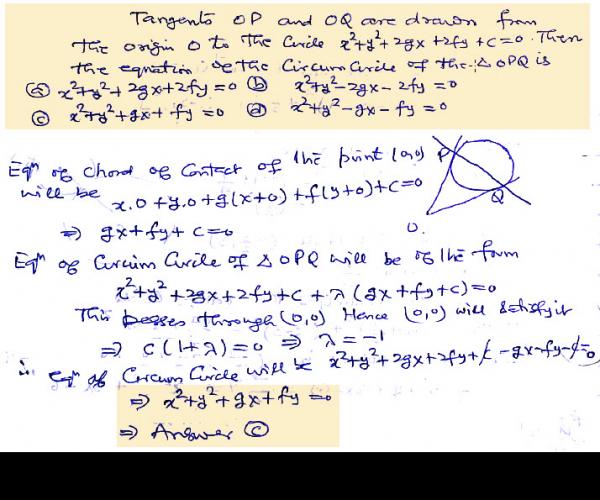 Tangents OP and OQ are drawn from
the origin O to the Circle x²+y²+2gx+2fy+c=0. Then
the equation of the Circum Circle of the △OPQ is
(a) x²+y²+2gx+2fy=0 (b) x²+y²-2gx-2fy=0
(c) x²+y²+gx+fy=0 (d) x²+y²-gx-fy=0
Eqⁿ of chord of Contact of the point (0,0)
will be
x.0+y.0+g(x+0)+f(y+0)+c=0
⇒ gx+fy+c=0
P
Q
O.
Eqⁿ of Circum Circle of △OPQ will be of the form
x²+y²+2gx+2fy+c+λ(gx+fy+c)=0
This passes through (0,0) Hence (0,0) will satisfy it
⇒ c(1+λ)=0 ⇒ λ=-1
∴ eqⁿ of Circum Circle will be x²+y²+2gx+2fy+c-gx-fy-c=0
⇒ x²+y²+gx+fy=0
⇒ Answer (c)